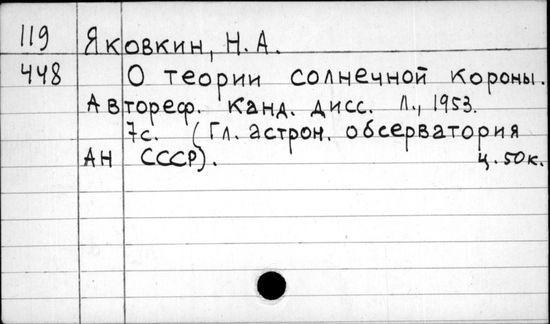 119 Яковкин, Н. А.
448 О теории солнечной короны.
Автореф. канд. дисс. Л., 1953.
7с. (Гл. астрон. обсерватория
АН СССР). ц. 50к.